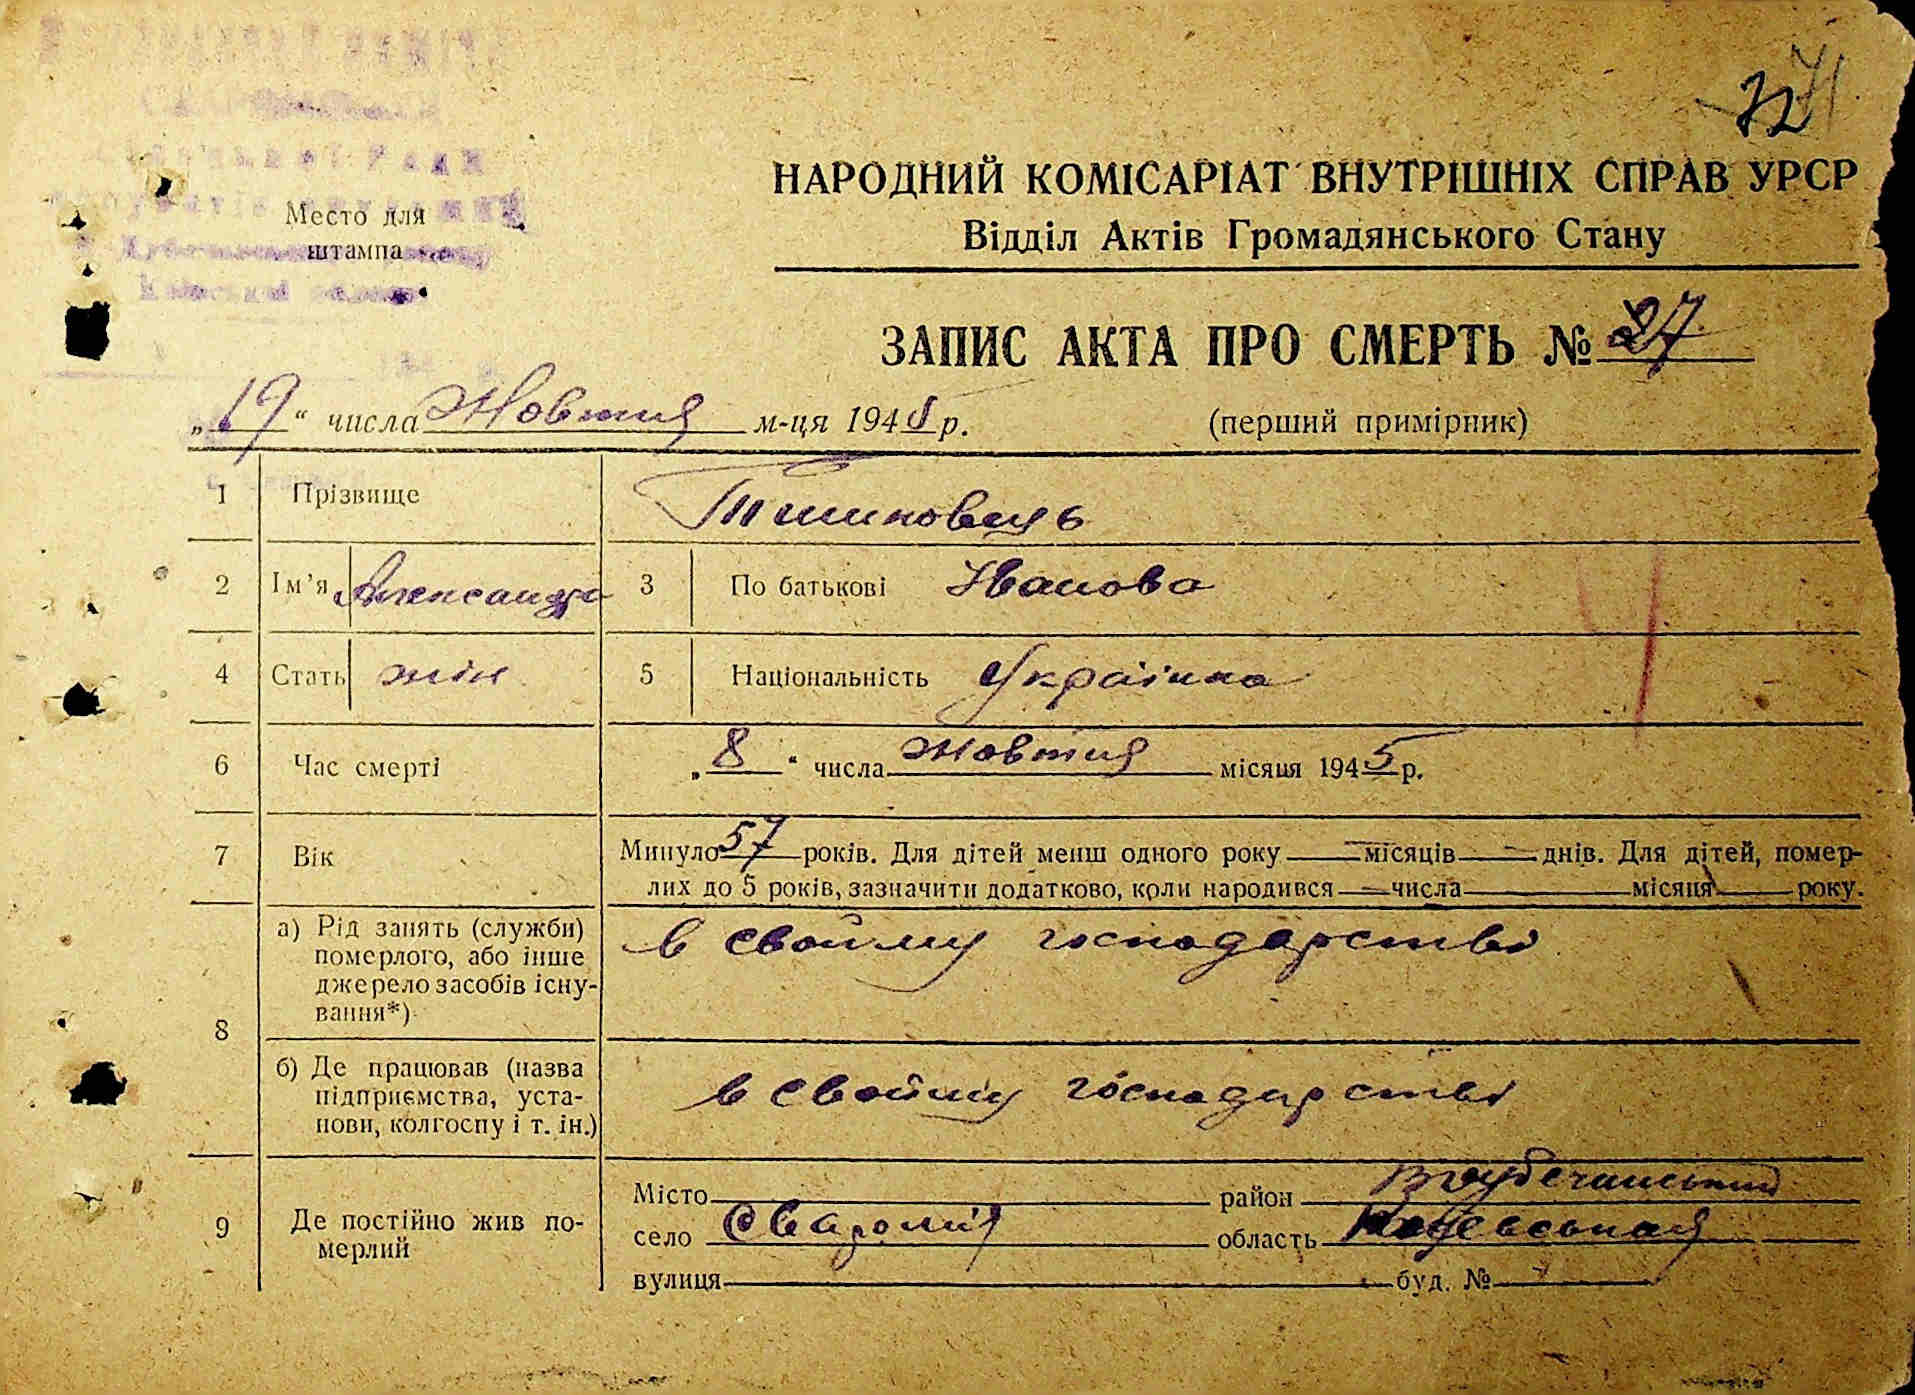 72 71
Место для
штампа
НАРОДНИЙ КОМІСАРІАТ ВНУТРІШНІХ СПРАВ УРСР
Відділ Актів Громадянського Стану
ЗАПИС АКТА ПРО СМЕРТЬ № 27
„19“ числа Жовтня м-ця 1945 р.
(перший примірник)
1 Прізвище Тишковець
2 Ім’я Александра 3 По батькові Іванова
4 Стать жін 5 Національність Українка
6 Час смерті „8“ числа жовтня місяця 1945 р.
7 Вік Минуло 57 років. Для дітей менш одного року — місяців — днів. Для дітей, помер-
лих до 5 років, зазначити додатково, коли народився — числа — місяця — року.
8 а) Рід занять (служби)
померлого, або інше
джерело засобів існу-
вання*)
в свойму господарстві
б) Де працював (назва
підприємства, уста-
нови, колгоспу і т. ін.)
в свойму господарстві
9 Де постійно жив по-
мерлий
Місто район
село область
вулиця буд. №